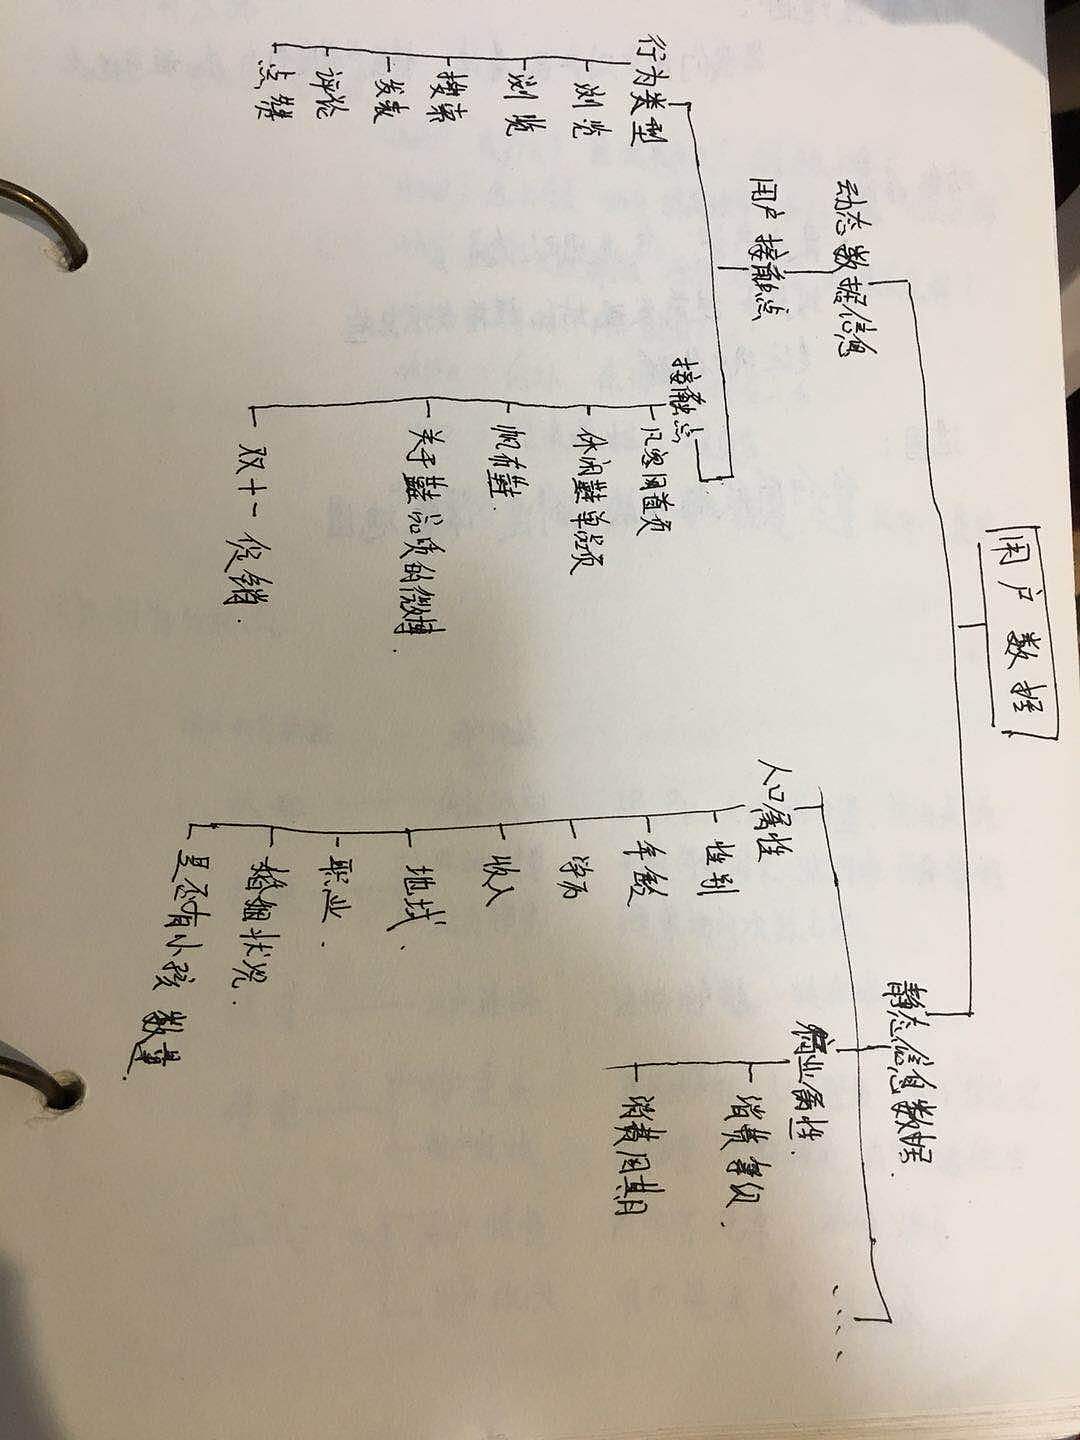 用户数据
动态数据信息
静态信息数据.
用户接触点
行为类型
浏览
浏览
搜索
发表
评论
点赞
接触点
凡客网首页
休闲鞋单品页
帆布鞋.
关于鞋品质的微博.
双十一促销.
人口属性
性别
年龄
学历
收入
地域.
职业.
婚姻状况.
是否有小孩 数量.
商业属性.
消费等级.
消费周期
....